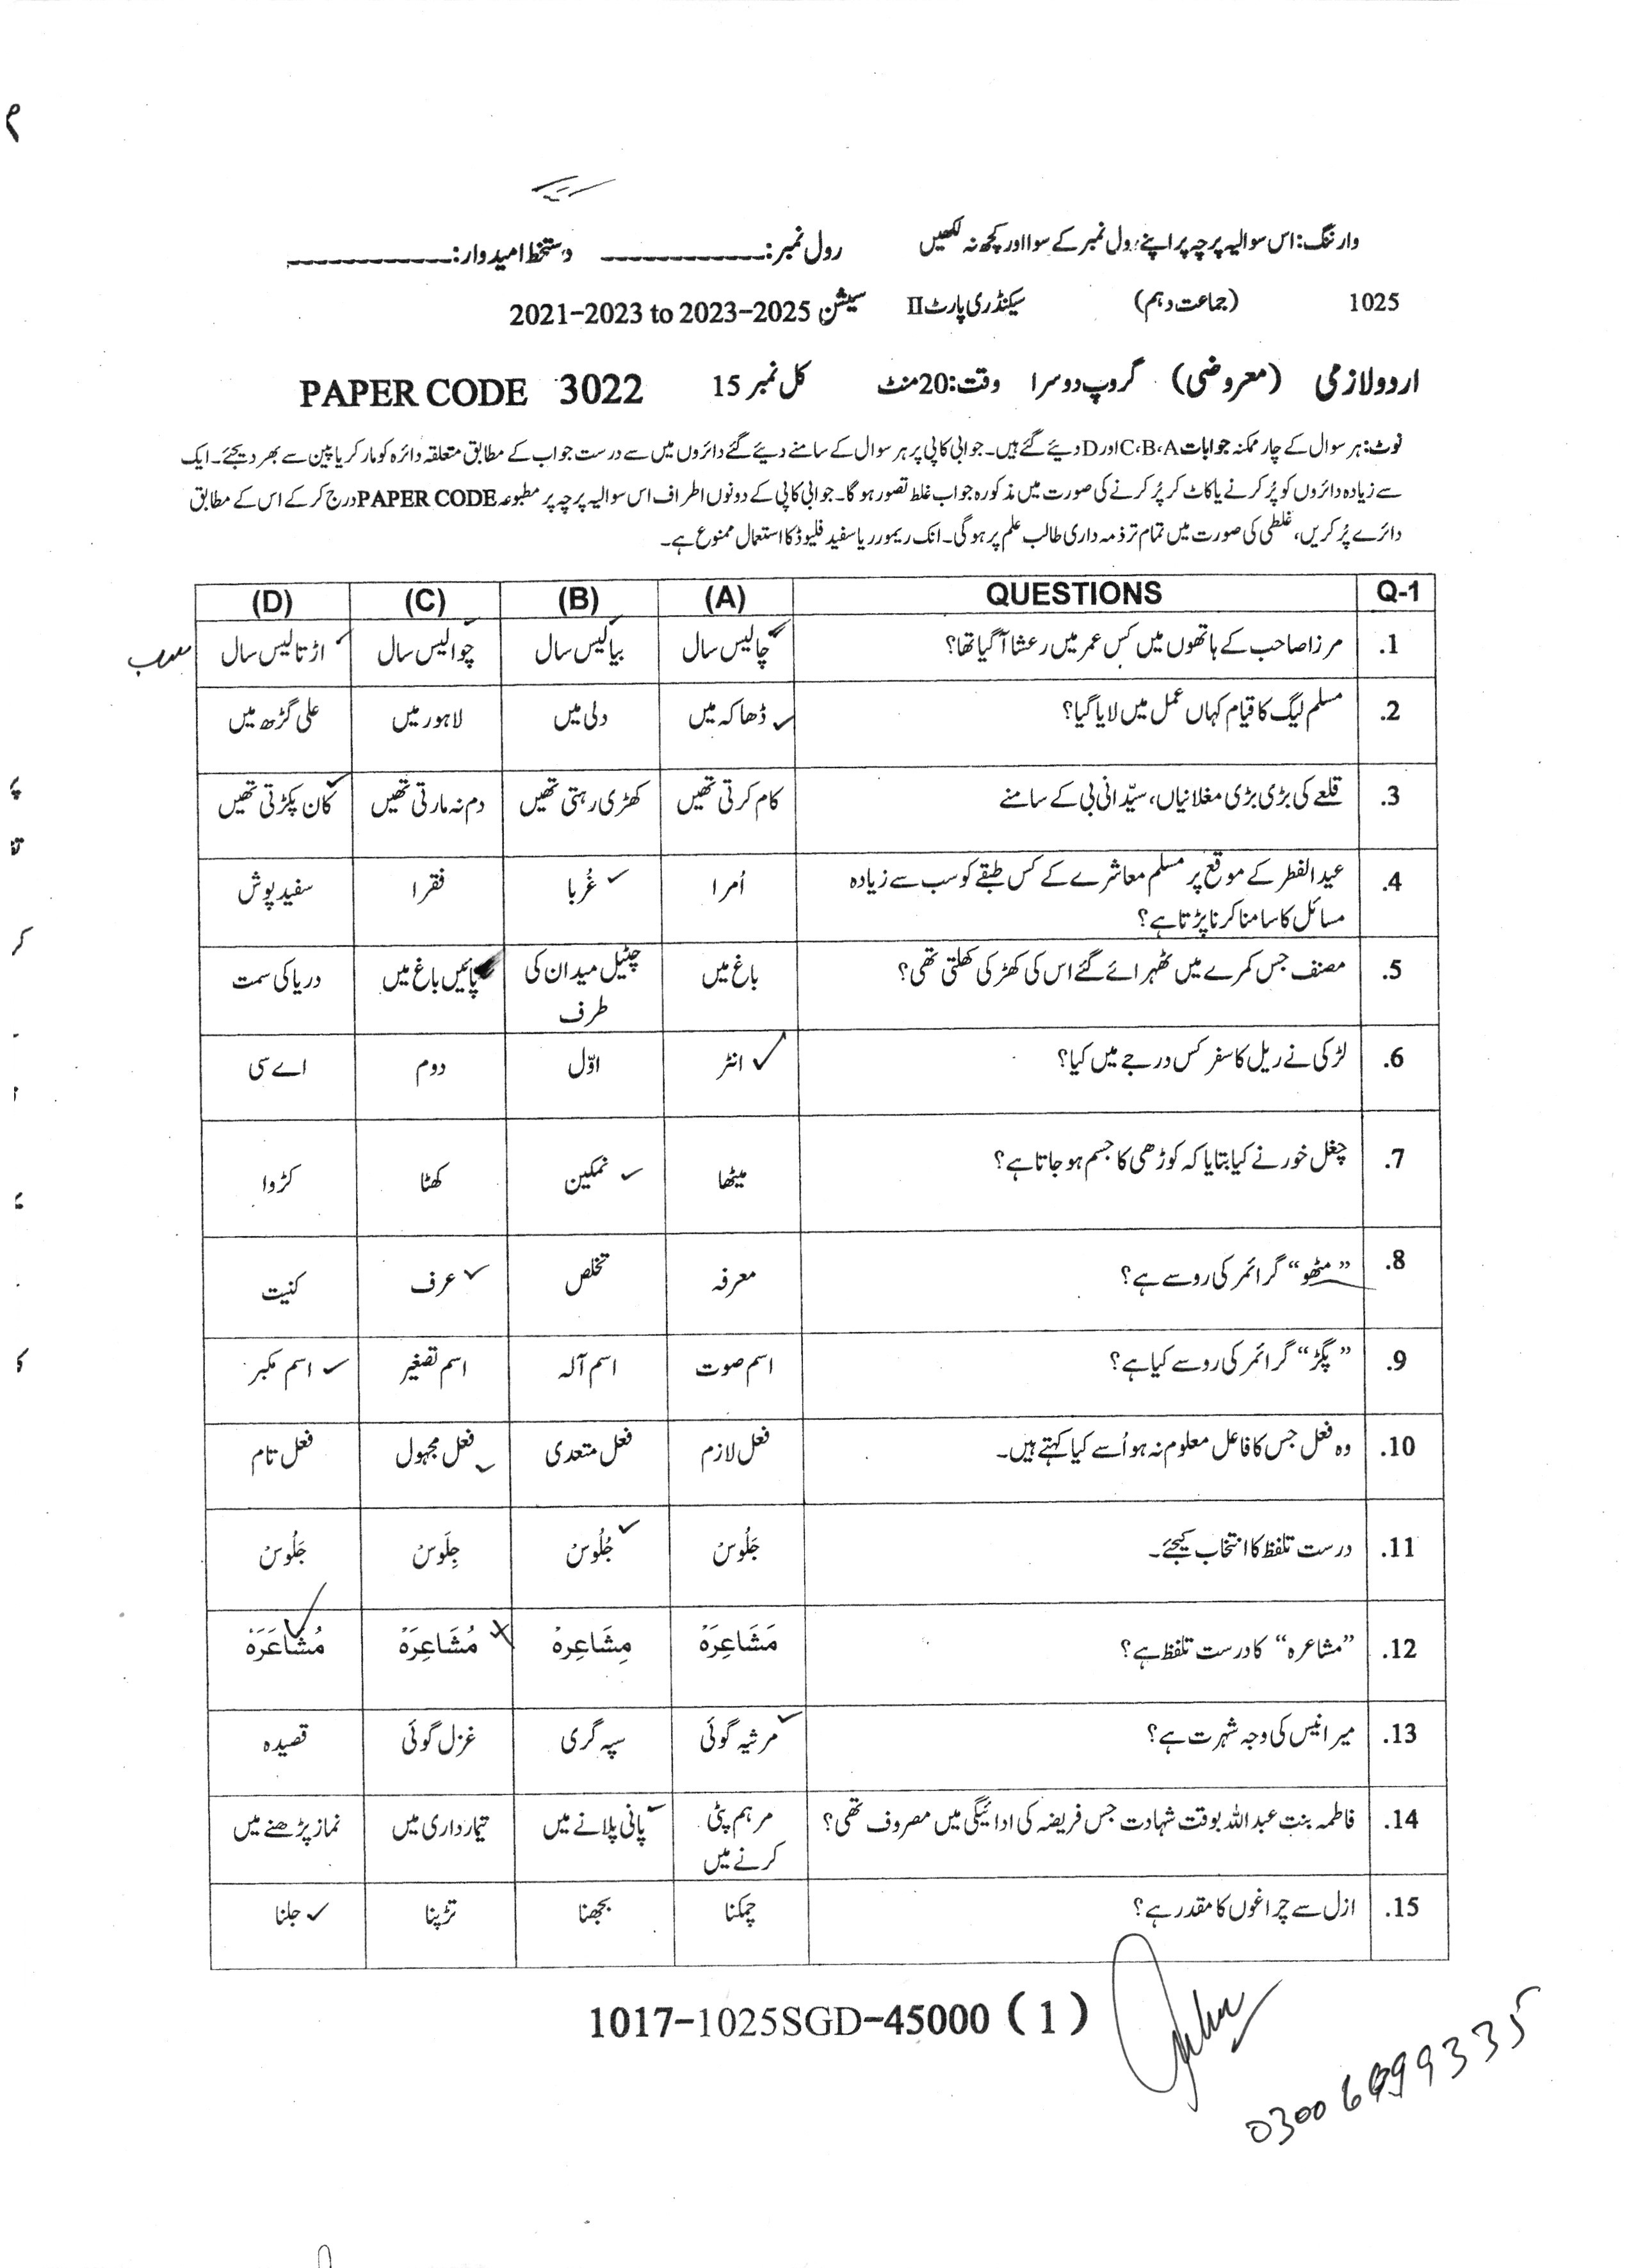 وارننگ: اس سوالیہ پرچہ پر اپنے رول نمبر کے سوا اور کچھ نہ لکھیں رول نمبر: ــــــــــــــــ دستخط امیدوار: ــــــــــــــــ
1025 (جماعت دہم) سیکنڈری پارٹ II سیشن 2021-2023 to 2023-2025
اردو لازمی (معروضی) گروپ دوسرا وقت: 20 منٹ کل نمبر 15 PAPER CODE 3022
نوٹ: ہر سوال کے چار ممکنہ جوابات A،B،C اور D دیئے گئے ہیں۔ جوابی کاپی پر ہر سوال کے سامنے دیئے گئے دائروں میں سے درست جواب کے مطابق متعلقہ دائرہ کو مارکر یا پین سے بھر دیجئے۔ ایک
سے زیادہ دائروں کو پُر کرنے یا کاٹ کر پُر کرنے کی صورت میں مذکورہ جواب غلط تصور ہوگا۔ جوابی کاپی کے دونوں اطراف اس سوالیہ پرچہ پر مطبوعہ PAPER CODE درج کر کے اس کے مطابق
دائرے پُر کریں، غلطی کی صورت میں تمام تر ذمہ داری طالب علم پر ہوگی۔ انک ریمورر یا سفید فلیوڈ کا استعمال ممنوع ہے۔
Q-1 QUESTIONS (A) (B) (C) (D)
1. مرزا صاحب کے ہاتھوں میں کس عمر میں رعشا آ گیا تھا؟ چالیس سال بیالیس سال چوالیس سال اڑتالیس سال
2. مسلم لیگ کا قیام کہاں عمل میں لایا گیا؟ ڈھاکہ میں دلی میں لاہور میں علی گڑھ میں
3. قلعے کی بڑی بڑی مغلانیاں، سیّدانی بی کے سامنے کام کرتی تھیں کھڑی رہتی تھیں دم نہ مارتی تھیں کان پکڑتی تھیں
4. عید الفطر کے موقع پر مسلم معاشرے کے کس طبقے کو سب سے زیادہ اُمرا غُربا فقرا سفید پوش
مسائل کا سامنا کرنا پڑتا ہے؟
5. مصنف جس کمرے میں ٹھہرائے گئے اس کی کھڑکی کھلتی تھی؟ باغ میں چٹیل میدان کی پائیں باغ میں دریا کی سمت
طرف
6. لڑکی نے ریل کا سفر کس درجے میں کیا؟ انٹر اوّل دوم اے سی
7. چغل خور نے کیا بتایا کہ کوڑھی کا جسم ہو جاتا ہے؟ میٹھا نمکین کھٹا کڑوا
8. ”مٹھو“ گرائمر کی رو سے ہے؟ معرفہ تخلص عرف کنیت
9. ”پگڑ“ گرائمر کی رو سے کیا ہے؟ اسم صوت اسم آلہ اسم تصغیر اسم مکبر
10. وہ فعل جس کا فاعل معلوم نہ ہو اُسے کیا کہتے ہیں۔ فعل لازم فعل متعدی فعل مجہول فعل تام
11. درست تلفظ کا انتخاب کیجئے۔ جَلُوسْ جُلُوسْ جِلَوسْ جَلُوسْ
12. ”مشاعرہ“ کا درست تلفظ ہے؟ مَشَاعِرَہْ مِشَاعِرہْ مُشَاعِرَہْ مُشاعَرَہْ
13. میر انیس کی وجہ شہرت ہے؟ مرثیہ گوئی سپہ گری غزل گوئی قصیدہ
14. فاطمہ بنت عبداللہ بوقت شہادت جس فریضہ کی ادائیگی میں مصروف تھی؟ مرہم پٹی پانی پلانے میں تیمارداری میں نماز پڑھنے میں
کرنے میں
15. ازل سے چراغوں کا مقدر ہے؟ چمکنا بجھنا تڑپنا جلنا
1017-1025SGD-45000 (1)